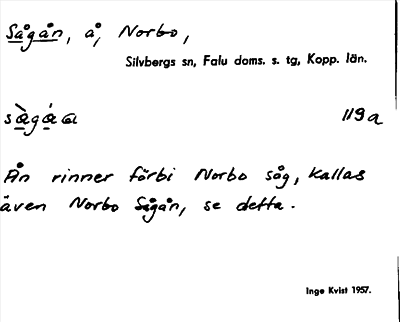 Sågån, å, Norbo,
Silvbergs sn, Falu doms. s. tg, Kopp. län.
sàgáa 119a
Ån rinner förbi Norbo såg, kallas
även Norbo Sågån, se detta.
Inge Kvist 1957.